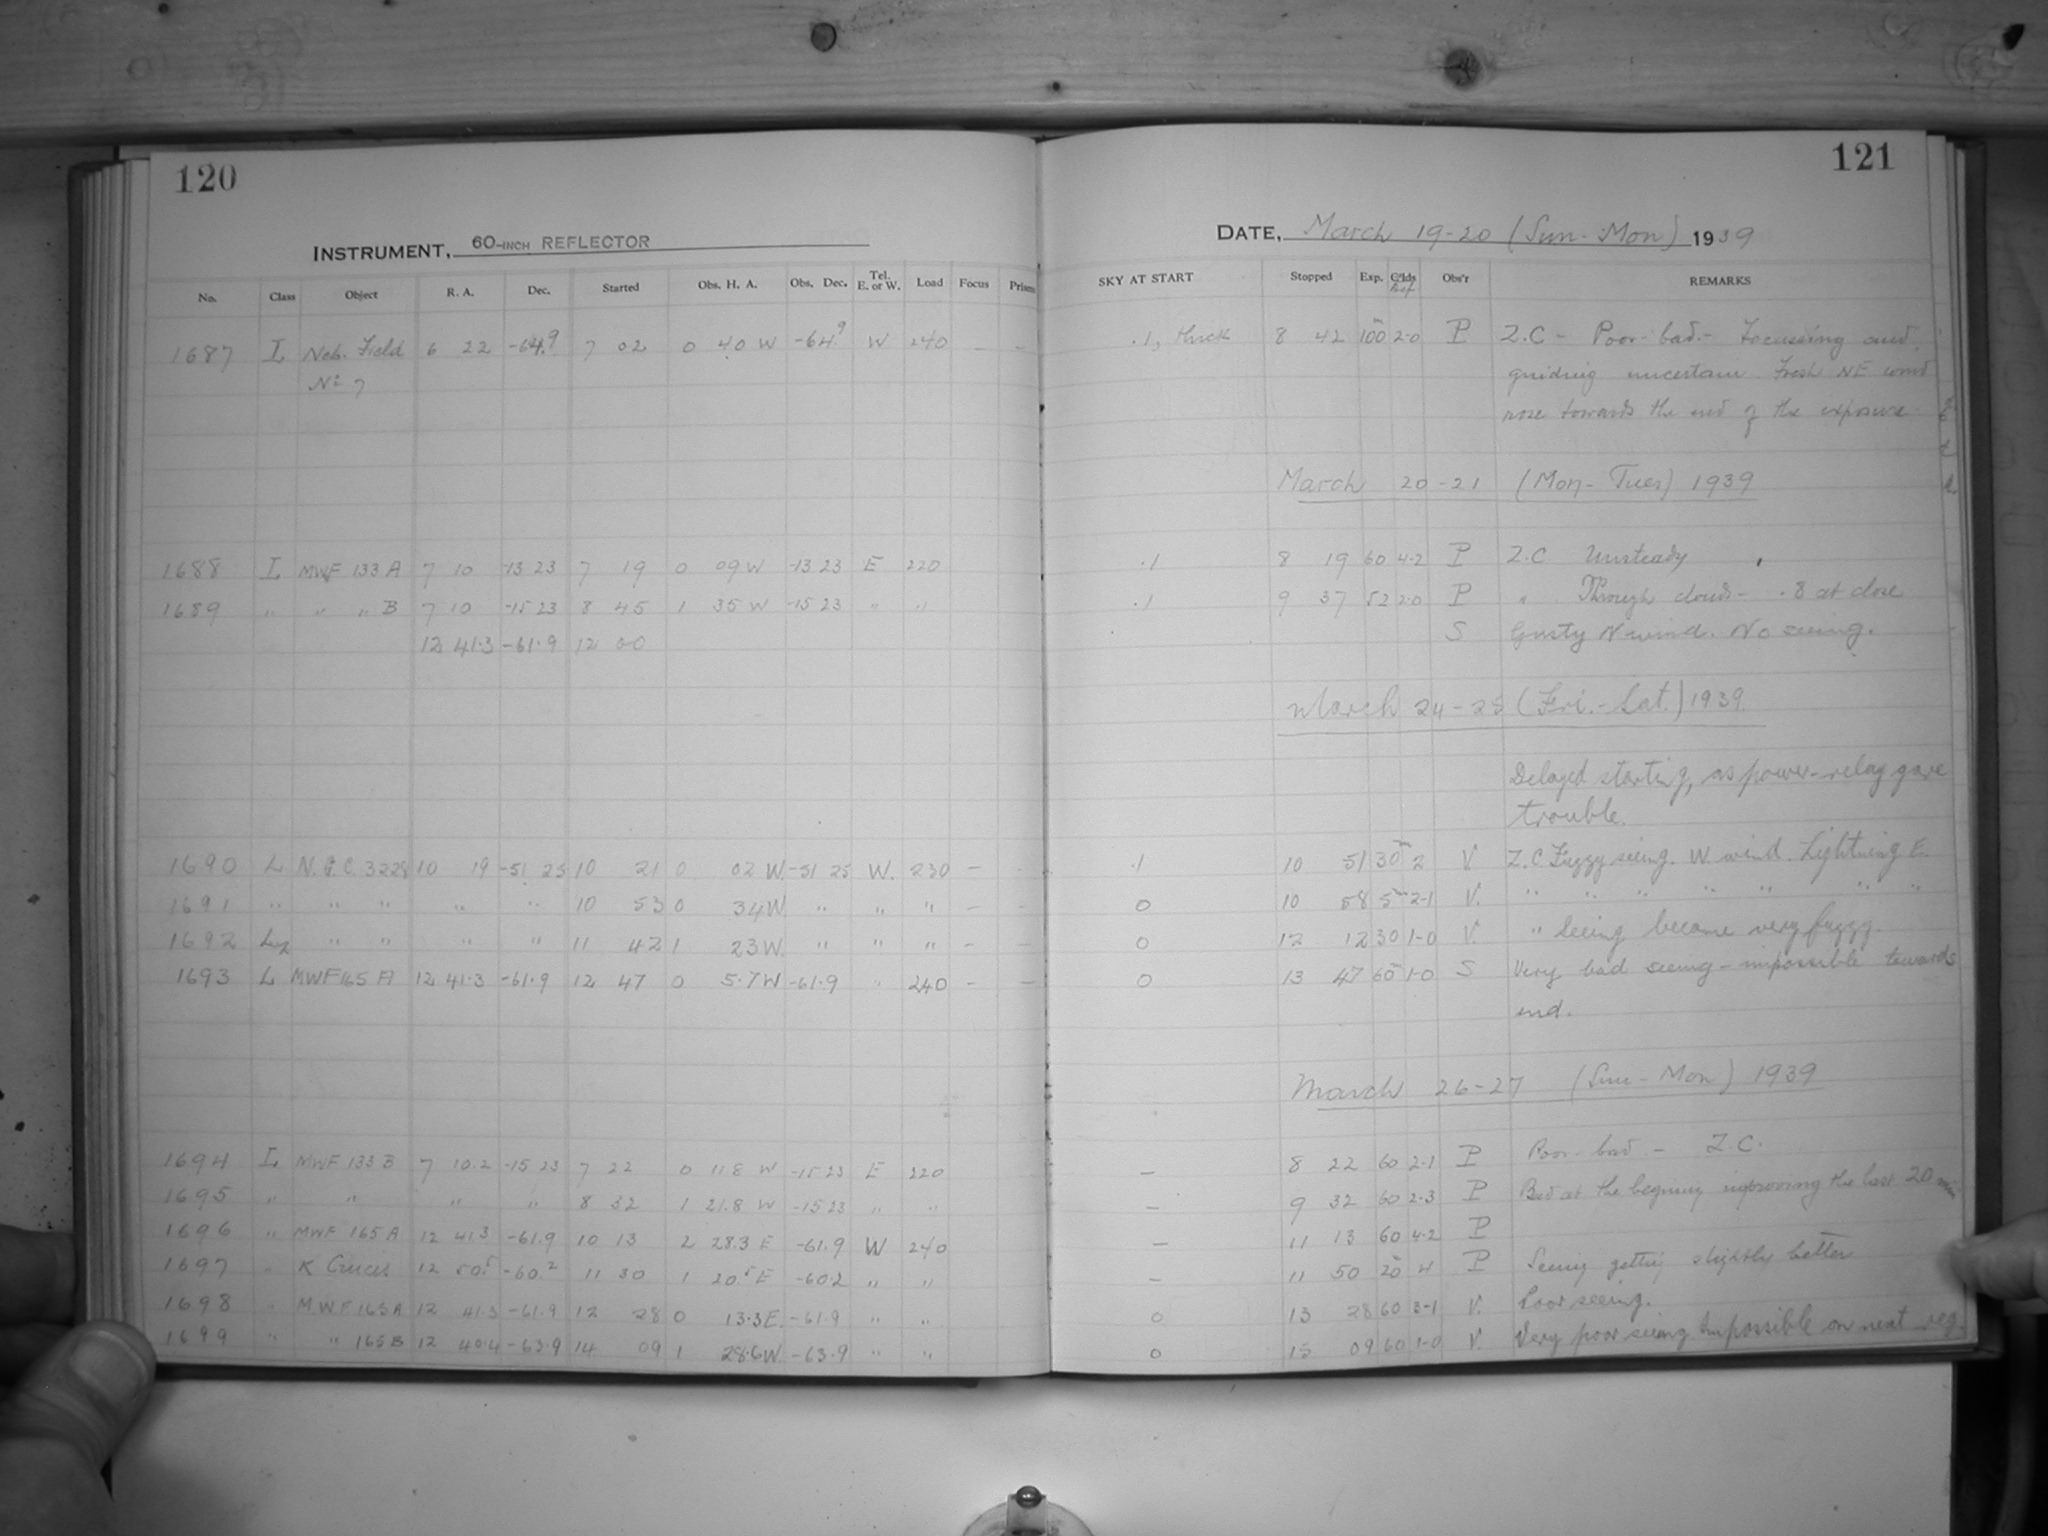 120
121
INSTRUMENT, 60-INCH REFLECTOR
DATE, March 19-20 (Sun-Mon) 1939
No. Class Object R. A. Dec. Started Obs. H. A. Obs. Dec. Tel. E. or W. Load Focus Prism SKY AT START Stopped Exp. G'lds Obs'r REMARKS
1687 L Neb. Field 6 22 -64.9 7 02 0 40 W -64.9 W 240 — — .1, thick 8 42 100m 2-0 P Z.C - Poor-bad.- Focussing and
No 7 guiding uncertain Fresh NE wind
rose towards the end of the exposure.
March 20-21 (Mon-Tues) 1939
1688 L MWF 133 A 7 10 -13 23 7 19 0 09 W -13 23 E 220 .1 8 19 60 4-2 P Z.C Unsteady
1689 " " " B 7 10 -15 23 8 45 1 35 W -15 23 " " .1 9 37 52 2-0 P " Through clouds - .8 at close
12 41.3 -61.9 12 00 S Gusty N wind. No seeing.
March 24-25 (Fri.-Sat.) 1939
Delayed starting, as power-relay gave
trouble.
1690 L N.G.C. 3228 10 19 -51 25 10 21 0 02 W. -51 25 W. 230 — - .1 10 51 30m 2 V. Z.C. Fuzzy seeing. W. wind. Lightning E.
1691 " " " " " 10 53 0 34 W. " " " — — 0 10 58 5m 2-1 V. " " " " " " "
1692 " " " " 11 42 1 23 W. " " " - - 0 12 12 30 1-0 V. " Seeing became very fuzzy.
1693 L MWF 165 A 12 41.3 -61.9 12 47 0 5.7 W -61.9 " 240 - — 0 13 47 60 1-0 S Very bad seeing - impossible towards
end.
March 26-27 (Sun-Mon) 1939
1694 L MWF 133 B 7 10.2 -15 23 7 22 0 11.8 W -15 23 E 220 — 8 22 60 2-1 P Poor-bad - Z.C.
1695 " " " " 8 32 1 21.8 W -15 23 " " — 9 32 60 2-3 P Bad at the begining improving the last 20 min
1696 " MWF 165 A 12 41.3 -61.9 10 13 2 28.3 E -61.9 W 240 — 11 13 60 4-2 P
1697 " K Crucis 12 50.5 -60.2 11 30 1 20.5 E -60.2 " " — 11 50 20m 4 P Seeing getting slightly better
1698 " M.W.F 165A 12 41.3 -61.9 12 28 0 13.3 E. -61.9 " " 0 13 28 60 3-1 V. Poor seeing.
1699 " " 165 B 12 40.4 -63.9 14 09 1 28.6 W. -63.9 " " 0 15 09 60 1-0 V. Very poor seeing. Impossible on next reg.